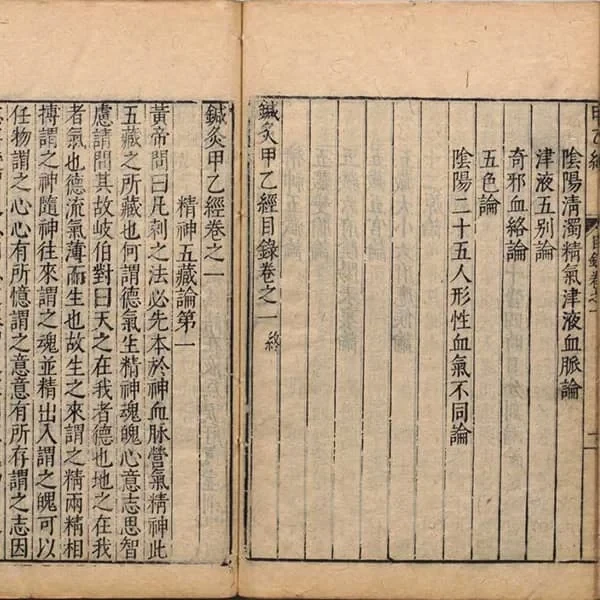 甲乙經 目錄卷之一
陰陽清濁精氣津液血脈論
津液五別論
奇邪血絡論
五色論
陰陽二十五人形性血氣不同論
鍼灸甲乙經目錄卷之一 終
鍼灸甲乙經卷之一
精神五藏論第一
黃帝問曰凡刺之法必先本於神血脉營氣精神此
五藏之所藏也何謂德氣生精神魂魄心意志思智
慮請問其故岐伯對曰天之在我者德也地之在我
者氣也德流氣薄而生也故生之來謂之精兩精相
搏謂之神隨神往來謂之魂並精出入謂之魄可以
任物謂之心心有所憶謂之意意有所存謂之志因